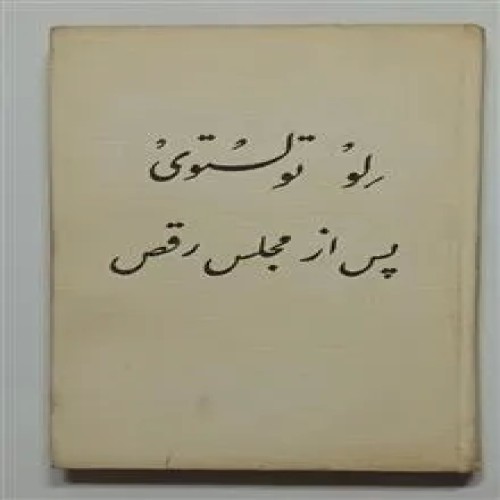 لئو تولستوی
پس از مجلس رقص